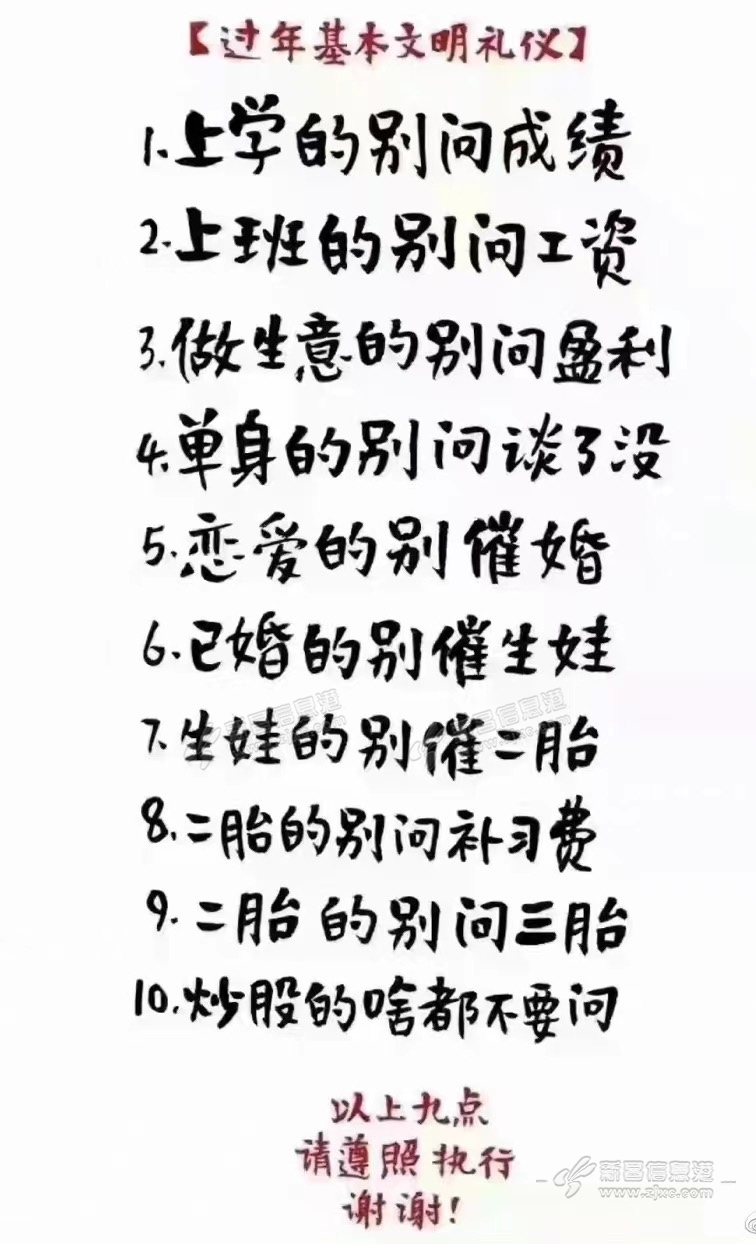 【过年基本文明礼仪】
1.上学的别问成绩
2.上班的别问工资
3.做生意的别问盈利
4.单身的别问谈了没
5.恋爱的别催婚
6.已婚的别催生娃
7.生娃的别催二胎
8.二胎的别问补习费
9.二胎的别问三胎
10.炒股的啥都不要问
以上九点
请遵照执行
谢谢!
新昌信息港
www.zjxc.com